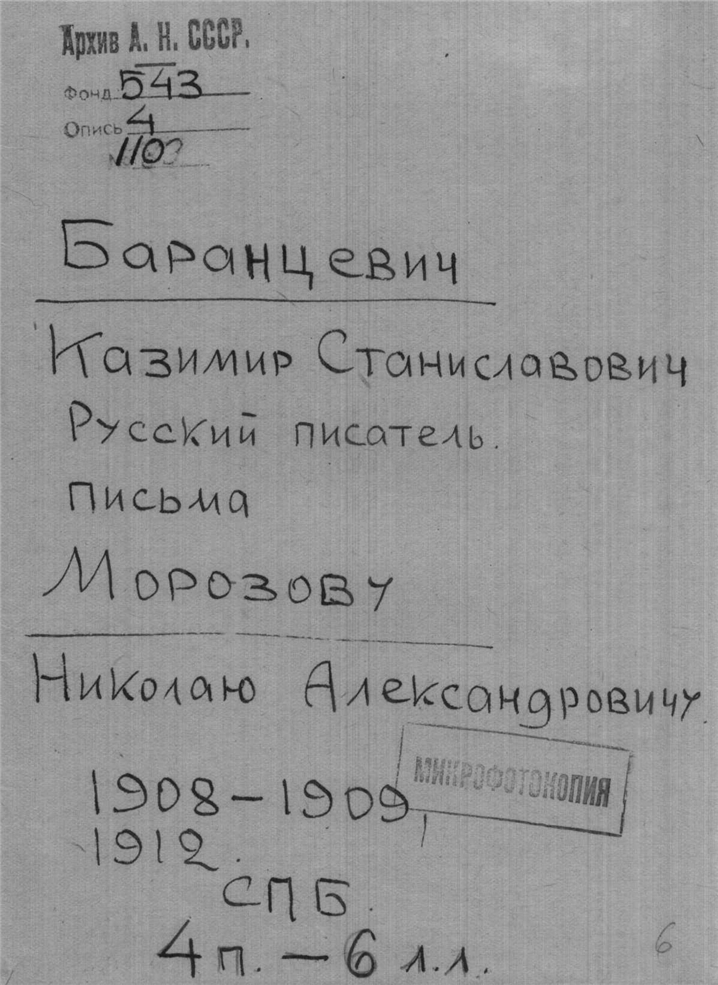 Архив А. Н. СССР.
Фонд 543
Опись 4
110
Баранцевич
Казимир Станиславович
Русский писатель.
письма
Морозову
Николаю Александровичу
1908-1909,
1912.
МИКРОФОТОКОПИЯ
СПБ.
4 п. — 6 л.л.
6